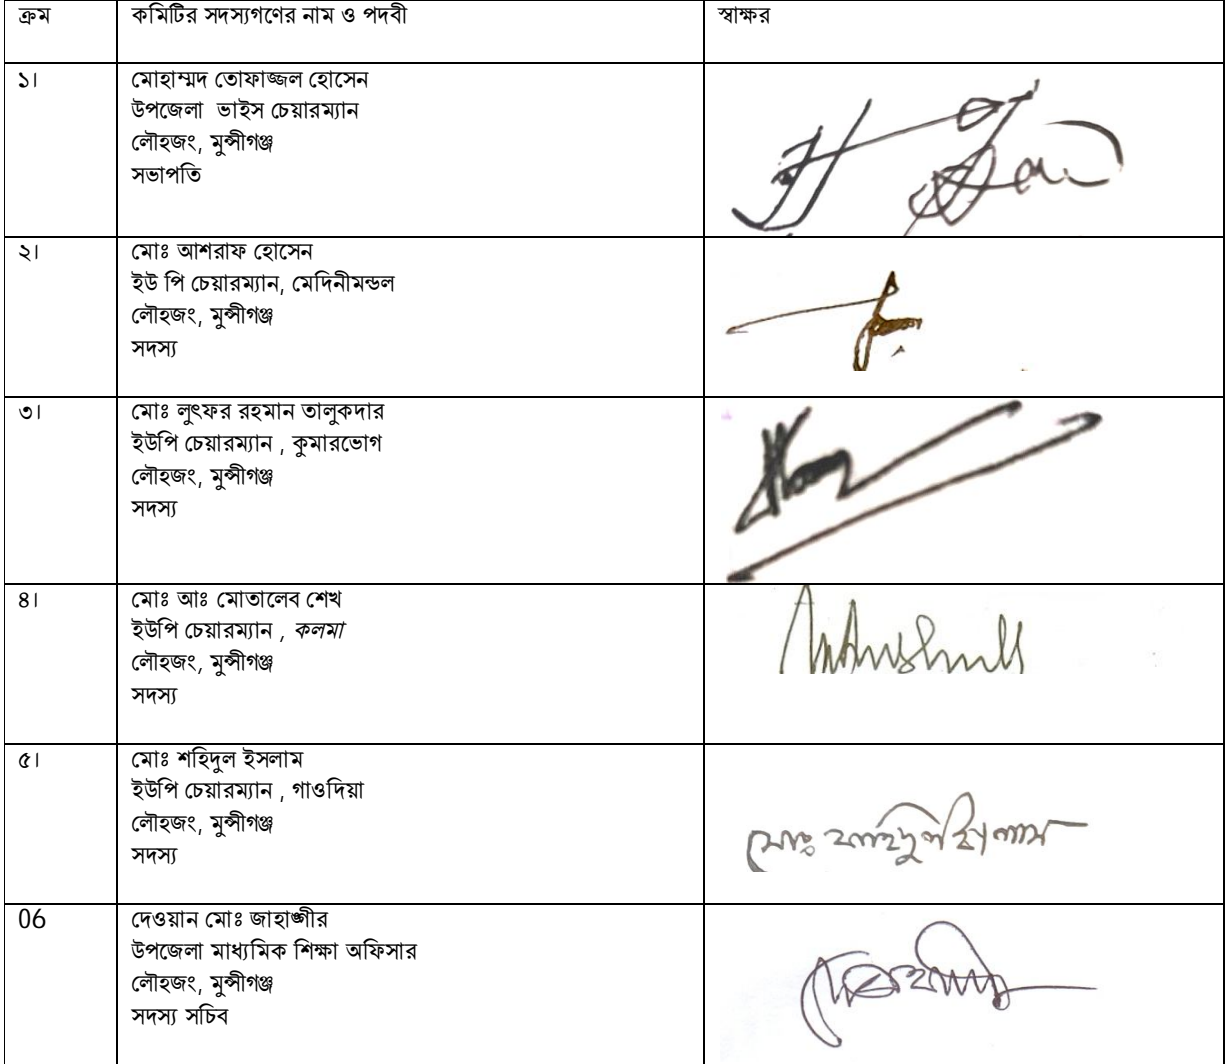 ক্রম কমিটির সদস্যগণের নাম ও পদবী স্বাক্ষর
১। মোহাম্মদ তোফাজ্জল হোসেন
উপজেলা ভাইস চেয়ারম্যান
লৌহজং, মুন্সীগঞ্জ
সভাপতি
২। মোঃ আশরাফ হোসেন
ইউ পি চেয়ারম্যান, মেদিনীমন্ডল
লৌহজং, মুন্সীগঞ্জ
সদস্য
৩। মোঃ লুৎফর রহমান তালুকদার
ইউপি চেয়ারম্যান , কুমারভোগ
লৌহজং, মুন্সীগঞ্জ
সদস্য
৪। মোঃ আঃ মোতালেব শেখ
ইউপি চেয়ারম্যান , কলমা
লৌহজং, মুন্সীগঞ্জ
সদস্য
৫। মোঃ শহিদুল ইসলাম
ইউপি চেয়ারম্যান , গাওদিয়া
লৌহজং, মুন্সীগঞ্জ
সদস্য
06 দেওয়ান মোঃ জাহাঙ্গীর
উপজেলা মাধ্যমিক শিক্ষা অফিসার
লৌহজং, মুন্সীগঞ্জ
সদস্য সচিব